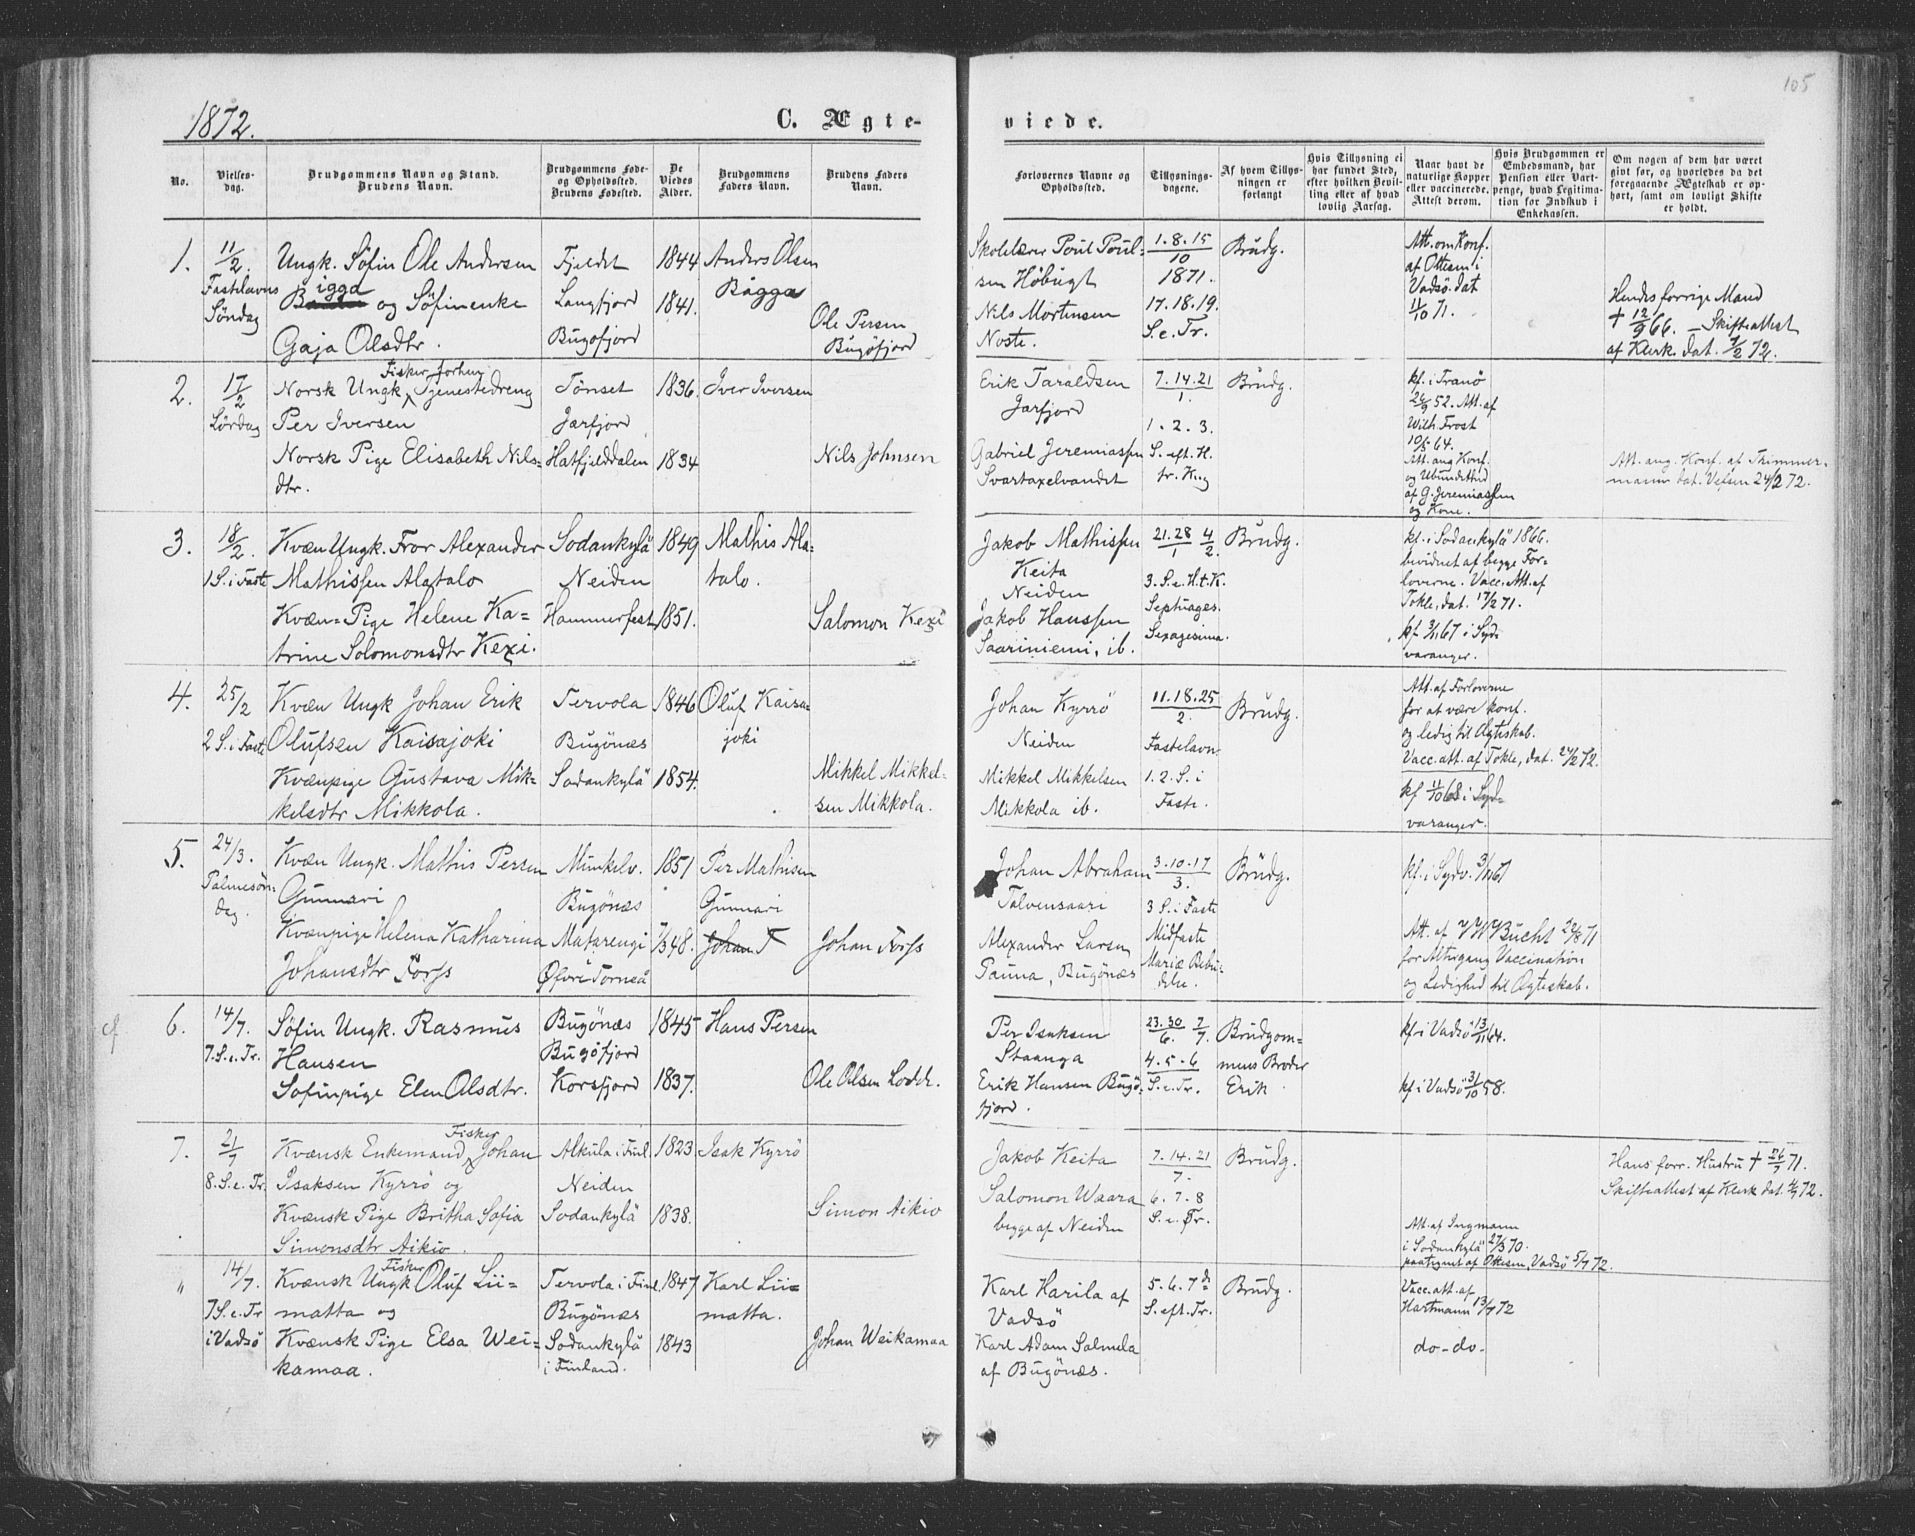 105
1872.
C. Ægte-
viede.
No.
Vielses-
dag.
Brudgommens Navn og Stand.
Brudens Navn.
Brudgommens Føde-
og Opholdssted.
Brudens Fødested.
De
Viedes
Alder.
Brudgommens
Faders Navn.
Brudens Faders
Navn.
Forlovernes Navne og
Opholdssted.
Tillysnings-
dagene.
Af hvem Tillys-
ningen er
forlangt
Hvis Tillysning ei
har fundet Sted,
efter hvilken Bevil-
ling eller af hvad
lovlig Aarsag.
Naar havt de
naturlige Kopper
eller vaccinerede.
Attest derom.
Hvis Brudgommen er
Embedsmand, har
Pension eller Vart-
penge, hvad Legitima-
tion for Indskud i
Enkekassen.
Om nogen af dem har været
givt før, og hvorledes da det
foregaaende Ægteskab er op-
hørt, samt om lovligt Skifte
er holdt.
1.
11/2.
Fastelavns
Søndag
Ungk. Søfin Ole Andersen
iggd
B og Søfinenke
Gaja Olsdtr.
Fjeldet
Langfjord
Bugøfjord
1844
1841.
Anders Olsen
Bägga
Ole Persen
Bugøfjord
Skolelærer Poul Poul-
sen Høbugt
Nils Mortensen
Noste.
1.8.15/10
1871.
17.18.19.
S. e. Tr.
Brudg.
Att. om Konf.
af Ottesen i
Vadsö dat
11/10 71.
Hendes forrige Mand
+ 12/9 66. – Skifteattest
af Klerk. dat. 7/2 72.
2.
17/2
Lørdag
Fisker forhen
Norsk Ungk. Tjenestedreng
Per Iversen
Norsk Pige Elisabeth Nils-
dtr.
Tønset
Jarfjord
Hatfjelddalen
1836.
1834
Iver Iversen
Nils Johnsen
Erik Taraldsen
Jarfjord
Gabriel Jeremiassen
Svartaxelvandet
7.14.21/1.
1.2.3.
S. eft. H.
tr. Kng
Brudg.
kf. i Tranö
26/9 52. Att. af
Wilh. Frost
10/5 64.
Att. ang Konf.
og Ubundethed
af G. Jeremiassen
og Kone.
Att. ang. Konf. af Thimmer-
mann dat. Vefsen 24/2 72.
3.
18/2.
1 S. i Faste
Kvæn Ungk. Fror Alexander
Mathissen Alatalo
Kvæn-Pige Helene Ka-
trine Solomonsdtr Kexi.
Sodankylä
Neiden
Hammerfest
1849
1851.
Mathis Ala-
talo.
Salomon Kexi
Jakob Mathissen
Keita
Neiden
Jakob Hanssen
Saariniemi, ib.
21.28/1 4/2.
3. S. e. H. t. K.
Septuages.
Sexagesima.
Brudg.
kf. i Sodankylä 1866.
bevidnet af begge For-
loverne. Vacc. Att. af
Tokle, dat. 17/2 71.
kf 3/11 67 i Syd-
varanger.
4.
25/2
2 S. i Faste
Kvæn Ungk Johan Erik
Olufsen Kaisajoki
Kvænpige Gustava Mik-
kelsdtr Mikkola.
Tervola
Bugönæs
Sodankylä
1846
1854.
Oluf Kaisa-
joki
Mikkel Mikkel-
sen Mikkola.
Johan Kyrrö
Neiden
Mikkel Mikkelsen
Mikkola ib.
11.18.25/2.
Fastelavn
1. 2. S. i
Faste.
Brudg.
Att. af Forloverne
for at være konf.
og ledig til Ægteskab.
Vacc. att. af Tokle, dat. 24/2 72.
kf 11/10 68 i Syd-
varanger.
5.
24/3.
Palmesøn-
dag.
Kvæn Ungk. Mathis Persen
Gunnari
Kvænpige Helena Katharina
Johansdtr Forss
Munkelv.
Bugönæs
Matarengi
Øfvre Torneå
1851
7/3 48.
Per Mathisen
Gunnari
Johan F
Johan Forss
Johan Abraham
Talvensaari
Alexander Larsen
Pauna, Bugönæs
3.10.17/3.
3 S. i Faste
Midfaste
Mariæ Bebu-
delse.
Brudg.
kf. i Sydv. 3/11 67
Att. af Bucht 22/8 71
for Altergang Vaccination
og Ledighed til Ægteskab.
cf
6.
14/7.
7. S. e. Tr.
Söfin Ungk. Rasmus
Hansen
Sofinpige Elen Olsdtr.
Bugönæs
Bugöfjord
Korsfjord
1845
1837.
Hans Persen
Ole Olsen Lodde.
Per Isaksen
Staanga
Erik Hansen Bugö-
fjord.
23.30/6. 7/7.
4 - 5 - 6
S. e. Tr.
Brudgom-
mens Broder
Erik
kf i Vadsö 13/11 64.
kf i Vadsö 31/10 58.
7.
21/7
8. S. e. Tr.
Fisker
Kvænsk Enkemand Johan
Isaksen Kyrrö og
Kvænsk Pige Britha Sofia
Simonsdtr Aikio.
Alkula i Finl.
Neiden
Sodankylä
1823
1838.
Isak Kyrrö
Simon Aikio
Jakob Keita
Salomon Waara
begge af Neiden
7.14.21/7.
6. 7. 8
S. e. Tr.
Brudg.
Att. af Ingmann
i Sodankylä 27/3 70.
paategnet af Ottesen, Vadsö 5/7 72.
Hans forr. Hustru + 26/7 71.
Skifteattest af Klerk dat. 4/7 72.
"
14/7.
7 S. e. Tr
i Vadsö
Fisker
Kvænsk Ungk Oluf Lii-
matta og
Kvænsk Pige Elsa Wei-
kamaa.
Tervola i Finl.
Bugönæs
Sodankylä
i Finland.
1847
1843
Karl Lii-
matta.
Johan Weikamaa
Karl Harila af
Vadsö
Karl Adam Salmela
af Bugönæs.
5. 6. 7de
S. eft. Tr.
Brudg.
Vacc. att. af
Hartmann 13/7 72
do - do -